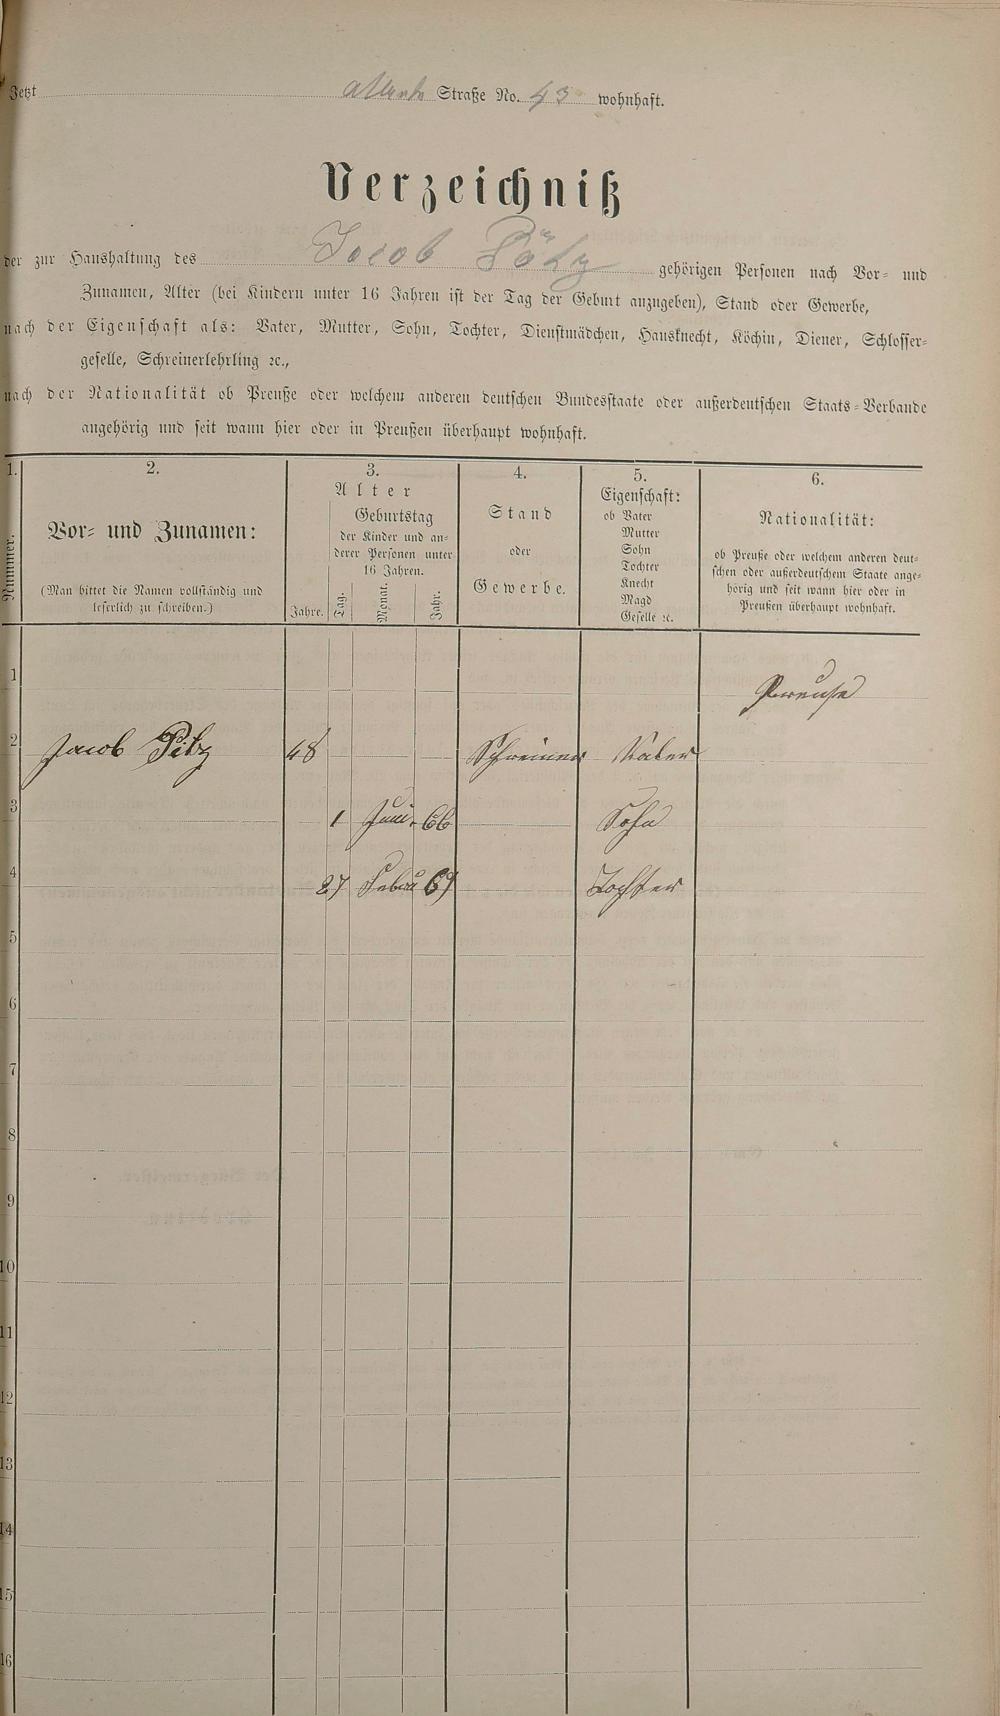 Jetzt Straße No. 43 wohnhaft.
Verzeichniß
der zur Haushaltung des Jocob Pötz gehörigen Personen nach Vor- und
Zunamen, Alter (bei Kindern unter 16 Jahren ist der Tag der Geburt anzugeben), Stand oder Gewerbe,
nach der Eigenschaft als: Vater, Mutter, Sohn, Tochter, Dienstmädchen, Hausknecht, Köchin, Diener, Schlosser-
geselle, Schreinerlehrling ꝛc.,
nach der Nationalität ob Preuße oder welchem anderen deutschen Bundesstaate oder außerdeutschen Staats-Verbande
angehörig und seit wann hier oder in Preußen überhaupt wohnhaft.
1.
Nummer.
2.
Vor- und Zunamen:
(Man bittet die Namen vollständig und
leserlich zu schreiben.)
3.
Alter
Jahre.
Geburtstag
der Kinder und an-
derer Personen unter
16 Jahren.
Tag. Monat. Jahr.
4.
Stand
oder
Gewerbe.
5.
Eigenschaft:
ob Vater
Mutter
Sohn
Tochter
Knecht
Magd
Geselle ꝛc.
6.
Nationalität:
ob Preuße oder welchem anderen deut-
schen oder außerdeutschem Staate ange-
hörig und seit wann hier oder in
Preußen überhaupt wohnhaft.
1 Preuße
2 Jacob Pötz 48 Schreiner Vater
3 1 Juni 66 Sohn
4 27 Febru 69 Tochter
5
6
7
8
9
10
11
12
13
14
15
16